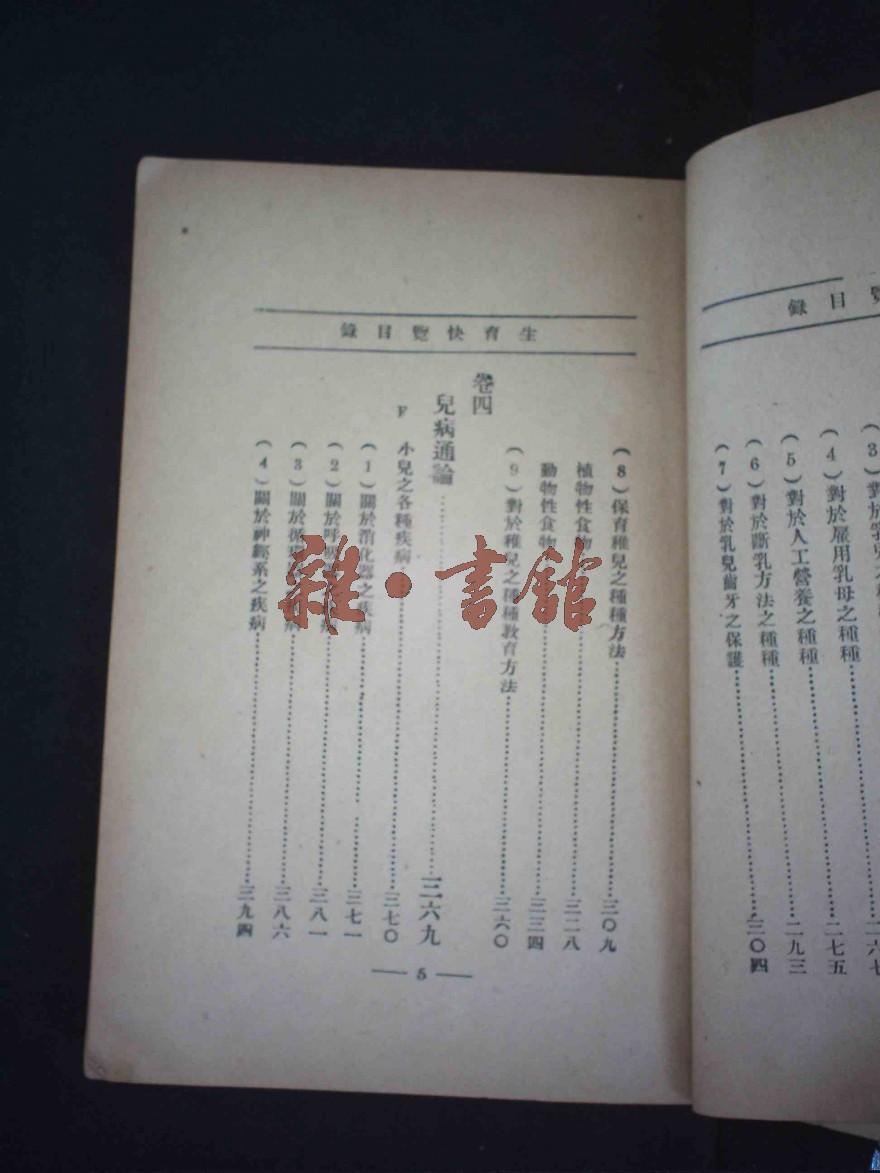 目錄
(3)對於乳兒之種
(4)對於雇用乳母之種種……二六七
(5)對於人工營養之種種……二七五
(6)對於斷乳方法之種種……二九三
(7)對於乳兒齒牙之保護……三〇四
生育快覽目錄
(8)保育稚兒之種種方法……三〇九
植物性食物……三二八
動物性食物……三三四
(9)對於稚兒之種種教育方法……三六〇
卷四
兒病通論……三六九
F 小兒之各種疾病……三七〇
(1)關於消化器之疾病……三七一
(2)關於呼吸病……三八一
(3)關於循病……三八六
(4)關於神經系之疾病……三九四
— 5 —
雜·書館